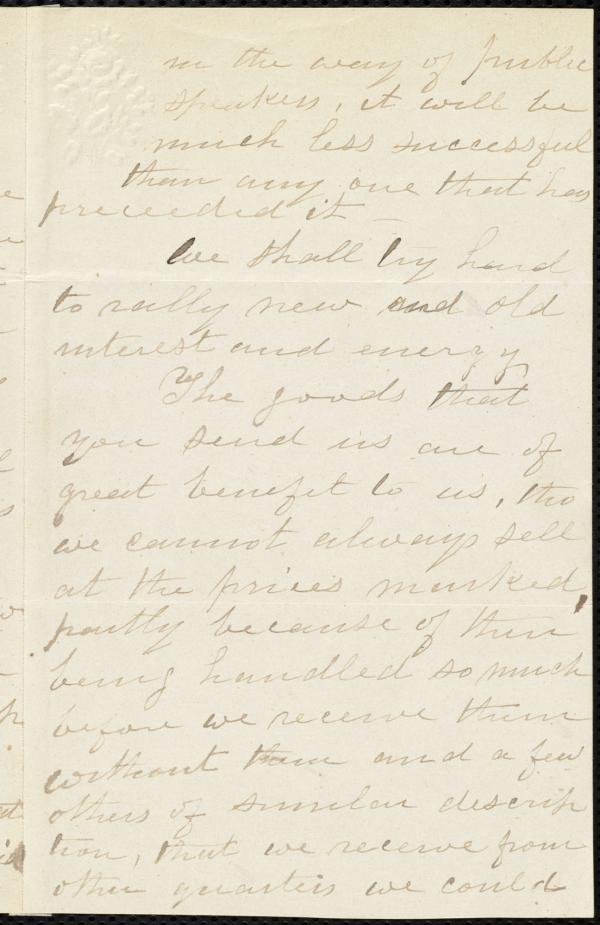 in the way of public
speakers, it will be
much less successful
than any one that has
preceeded it –
We shall try hard
to rally new and old
interest and energy
The goods that
you send us are of
great benefit to us, tho
we cannot always sell
at the prices marked,
partly because of their
being handled so much
before we receive them
without them and a few
others of similar descrip
tion, that we receive from
other quarters we could